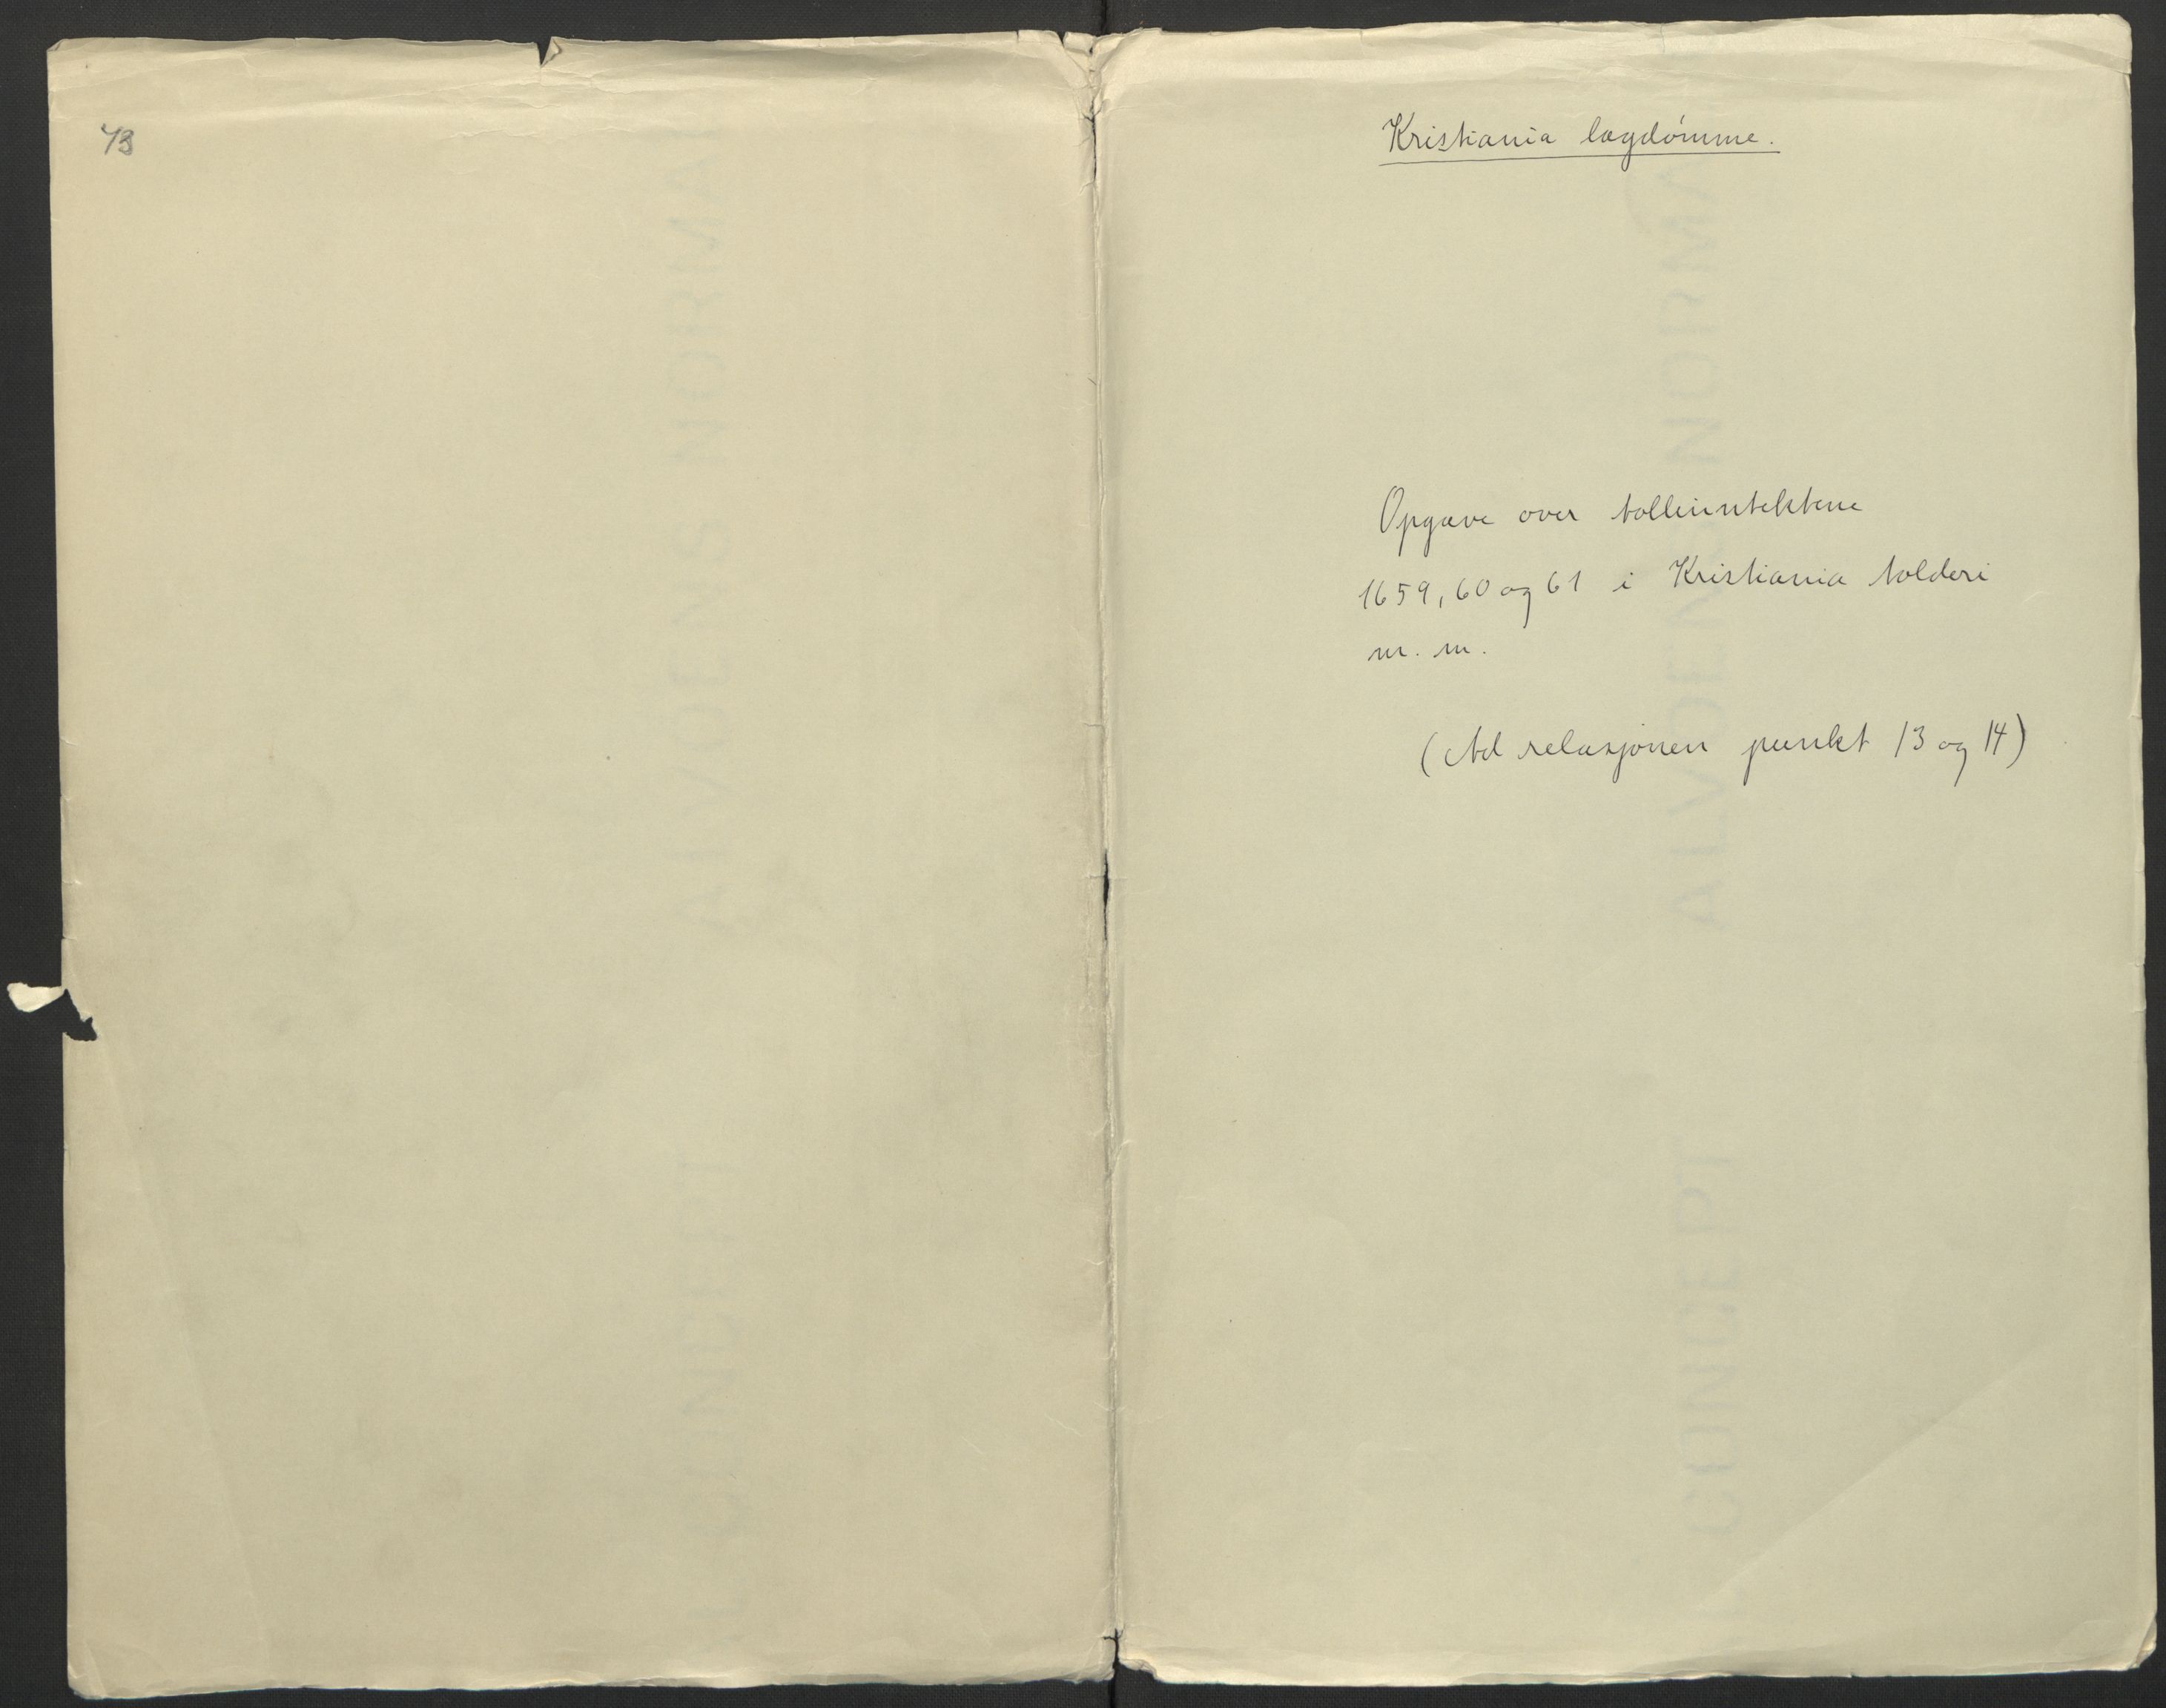 73
Kristiania lagdømme.
Opgave over tollinntektene
1659, 60 og 61 i Kristiania tolderi
m. m.
(Ad relasjonen punkt 13 og 14)